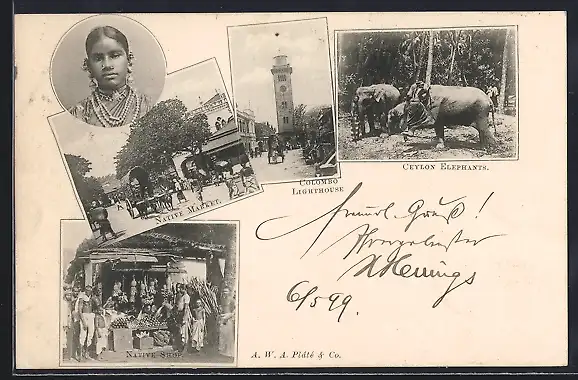 COLOMBO
LIGHTHOUSE
CEYLON ELEPHANTS.
NATIVE MARKET.
Freundl. Gruß!
6/5 99.
NATIVE SHOP.
A. W. A. Plâté & Co.